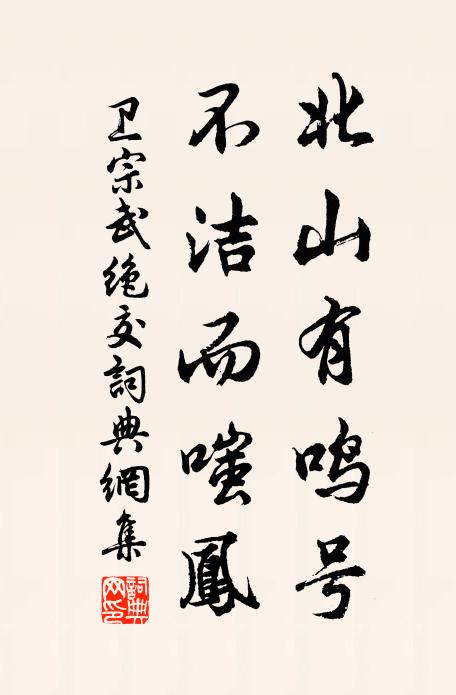 北山有鸣号
不洁而嗤鳳
卫宗武绝交詞典網集
詞典网印